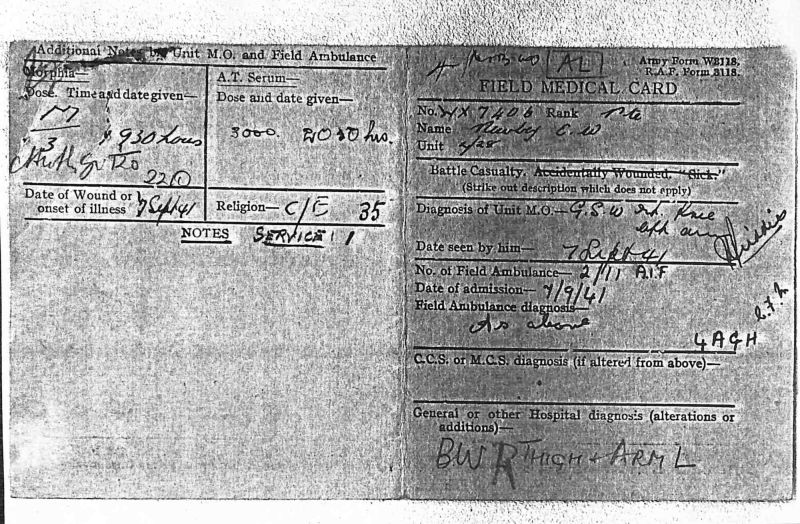 Additional Notes by Unit M.O. and Field Ambulance
Morphia—
Dose. Time and date given—
930 hours
3
22
A.T. Serum—
Dose and date given—
3000. 2030 hrs.
Date of Wound or
onset of illness 7 Sept 41
Religion— C/E 35
NOTES SERVICE: 1
AL
Army Form W3118.
R.A.F. Form 3118.
FIELD MEDICAL CARD
No. WX 7406 Rank Pte
Name Newby C. W
Unit 2/28
Battle Casualty, Accidentally Wounded, "Sick."
(Strike out description which does not apply)
Diagnosis of Unit M.O.— G.S.W Knee
left arm
Date seen by him— 7 Sept 41
No. of Field Ambulance— 2/11 A.I.F
Date of admission— 7/9/41
Field Ambulance diagnosis—
As above
4 AGH
C.C.S. or M.C.S. diagnosis (if altered from above)—
General or other Hospital diagnosis (alterations or
additions)—
BW R THIGH + ARM L